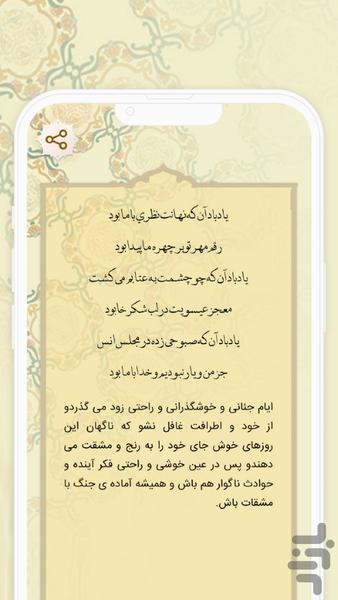 یاد باد آن که نهانت نظری با ما بود
رقم مهر تو بر چهره ما پیدا بود
یاد باد آن که چو چشمت به عتابم می کشت
معجز عیسویت در لب شکرخا بود
یاد باد آن که صبوحی زده در مجلس انس
جز من و یار نبودیم و خدا با ما بود
ایام جئانی و خوشگذرانی و راحتی زود می گذردو
از خود و اطرافت غافل نشو که ناگهان این
روزهای خوش جای خود را به رنج و مشقت می
دهندو پس در عین خوشی و راحتی فکر آینده و
حوادث ناگوار هم باش و همیشه آماده ی جنگ با
مشقات باش.
بازار